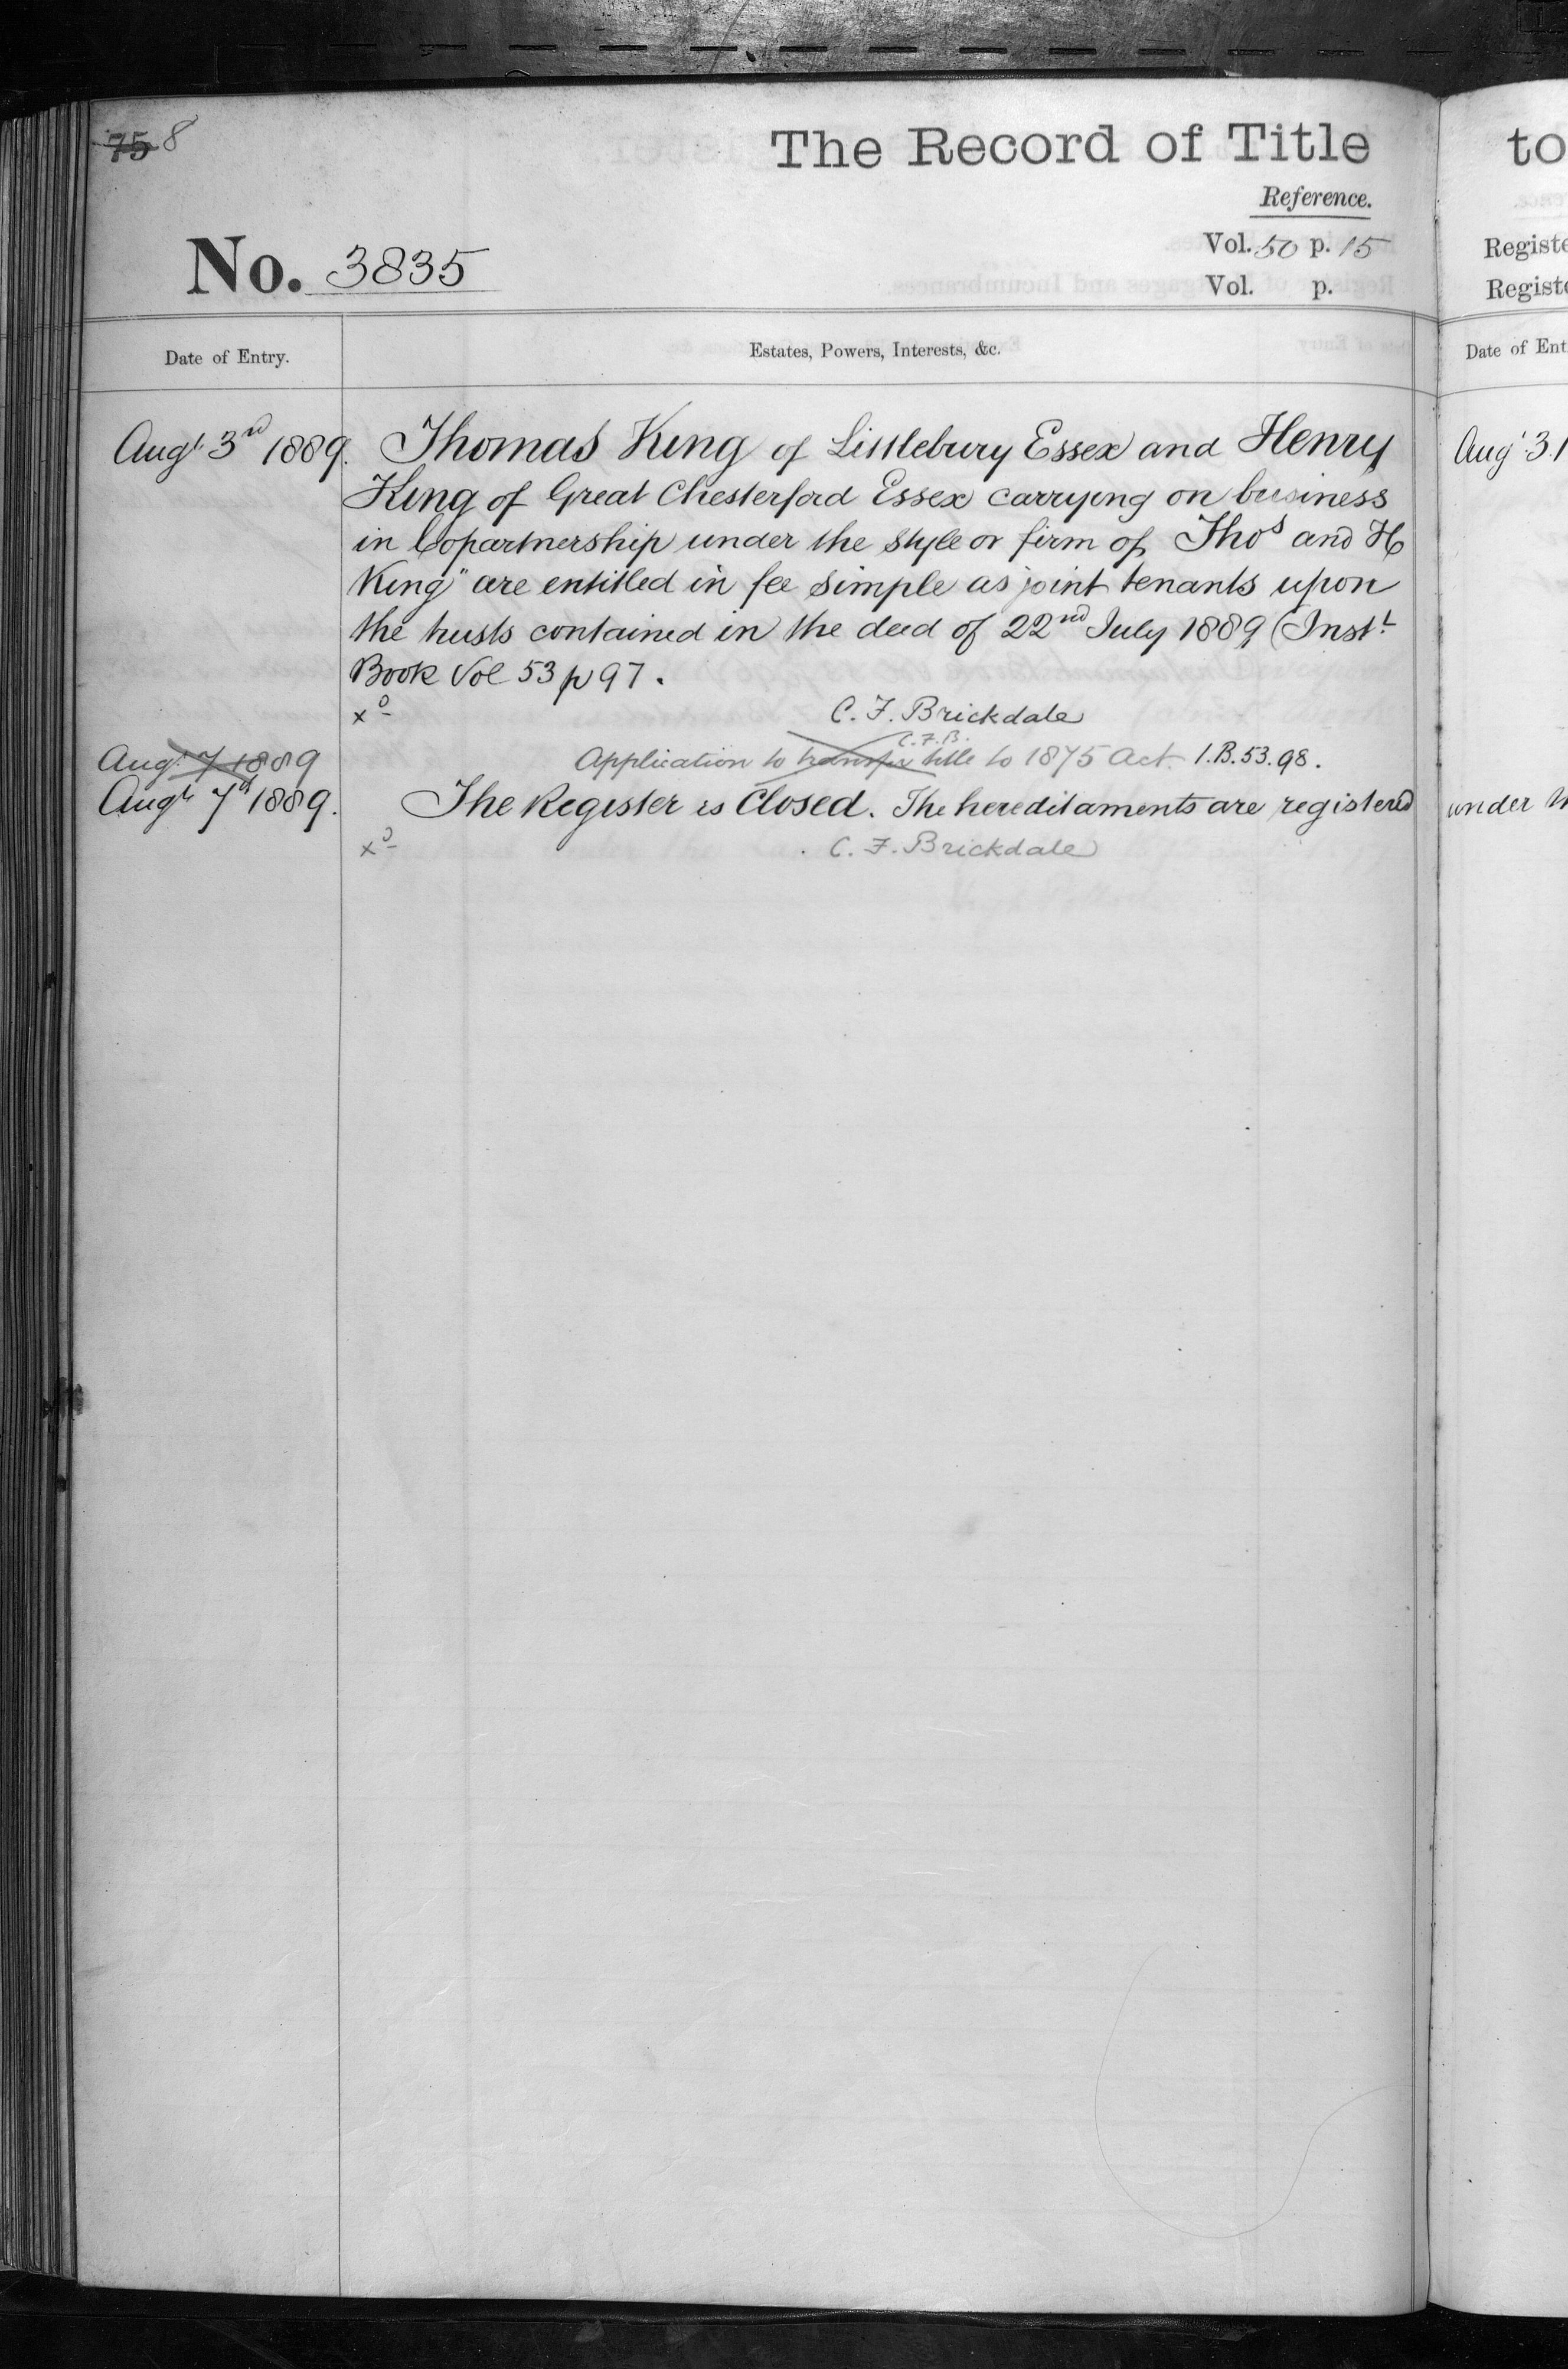 75 8
The Record of Title
Reference.
No. 3835
Vol. 50 p. 15
Vol. p.
Date of Entry.
Estates, Powers, Interests, &c.
Augt. 3rd 1889. Thomas King of Littlebury Essex and Henry
King of Great Chesterford Essex carrying on business
in Copartnership under the style or firm of Thos and H
King" are entitled in fee simple as joint tenants upon
the trusts contained in the deed of 22nd July 1889 (Instt.
Book Vol 53 p 97.
C. F. Brickdale
C.F.B.
Augt. 7 1889 Application to transfer title to 1875 Act. I.B. 53. 98.
Augt. 7th 1889. The Register is Closed. The hereditaments are registered
C. F. Brickdale
to
Registe
Registe
Date of Ent
Augt. 3. 1
under